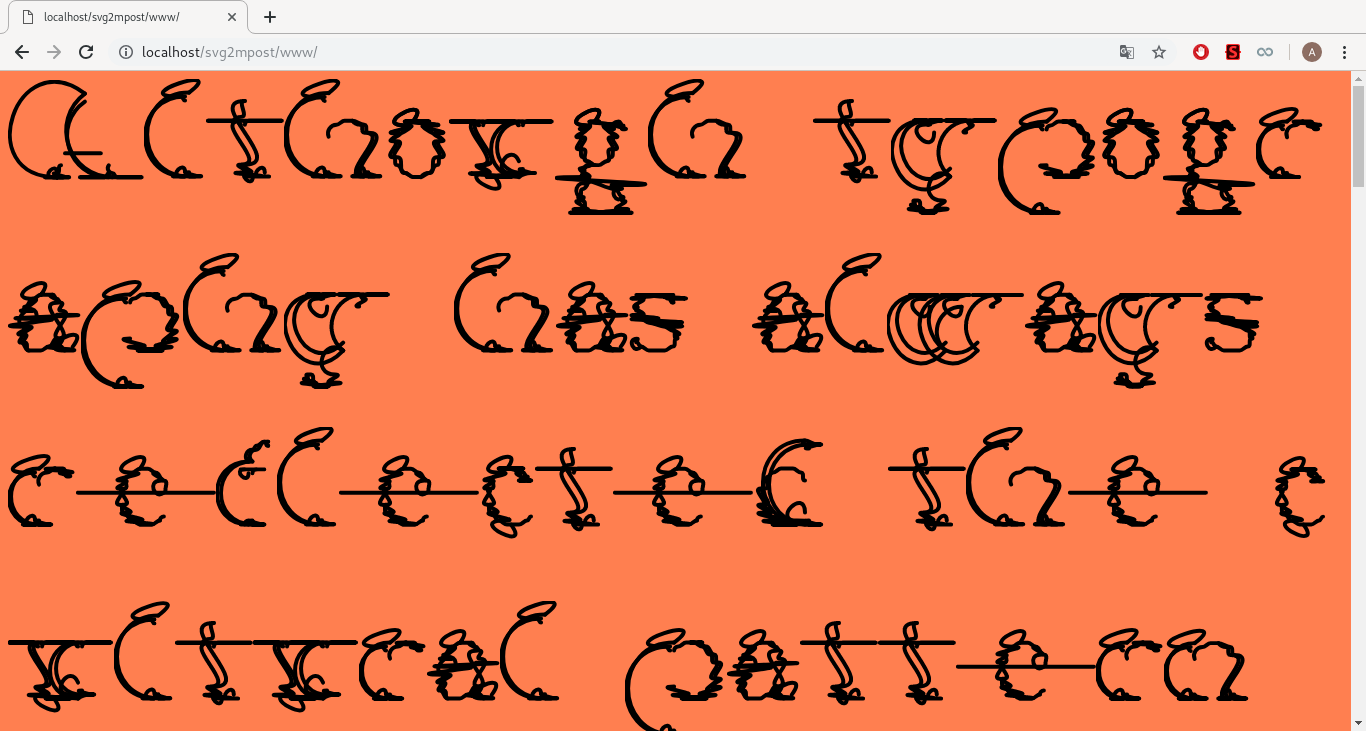 localhost/svg2mpost/www/
localhost/svg2mpost/www/
A
Although typogr
aphy has always
reflected the c
ultural pattern